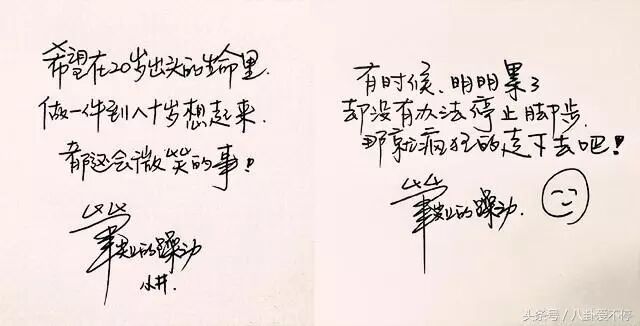 希望在20岁出头的生命里.
做一件到八十岁想起来.
都还会微笑的事!
毕业的躁动
小井.
有时候、明明累了
却没有办法停止脚步.
那就疯狂的走下去吧!
毕业的躁动.
头条号/八卦爱不停